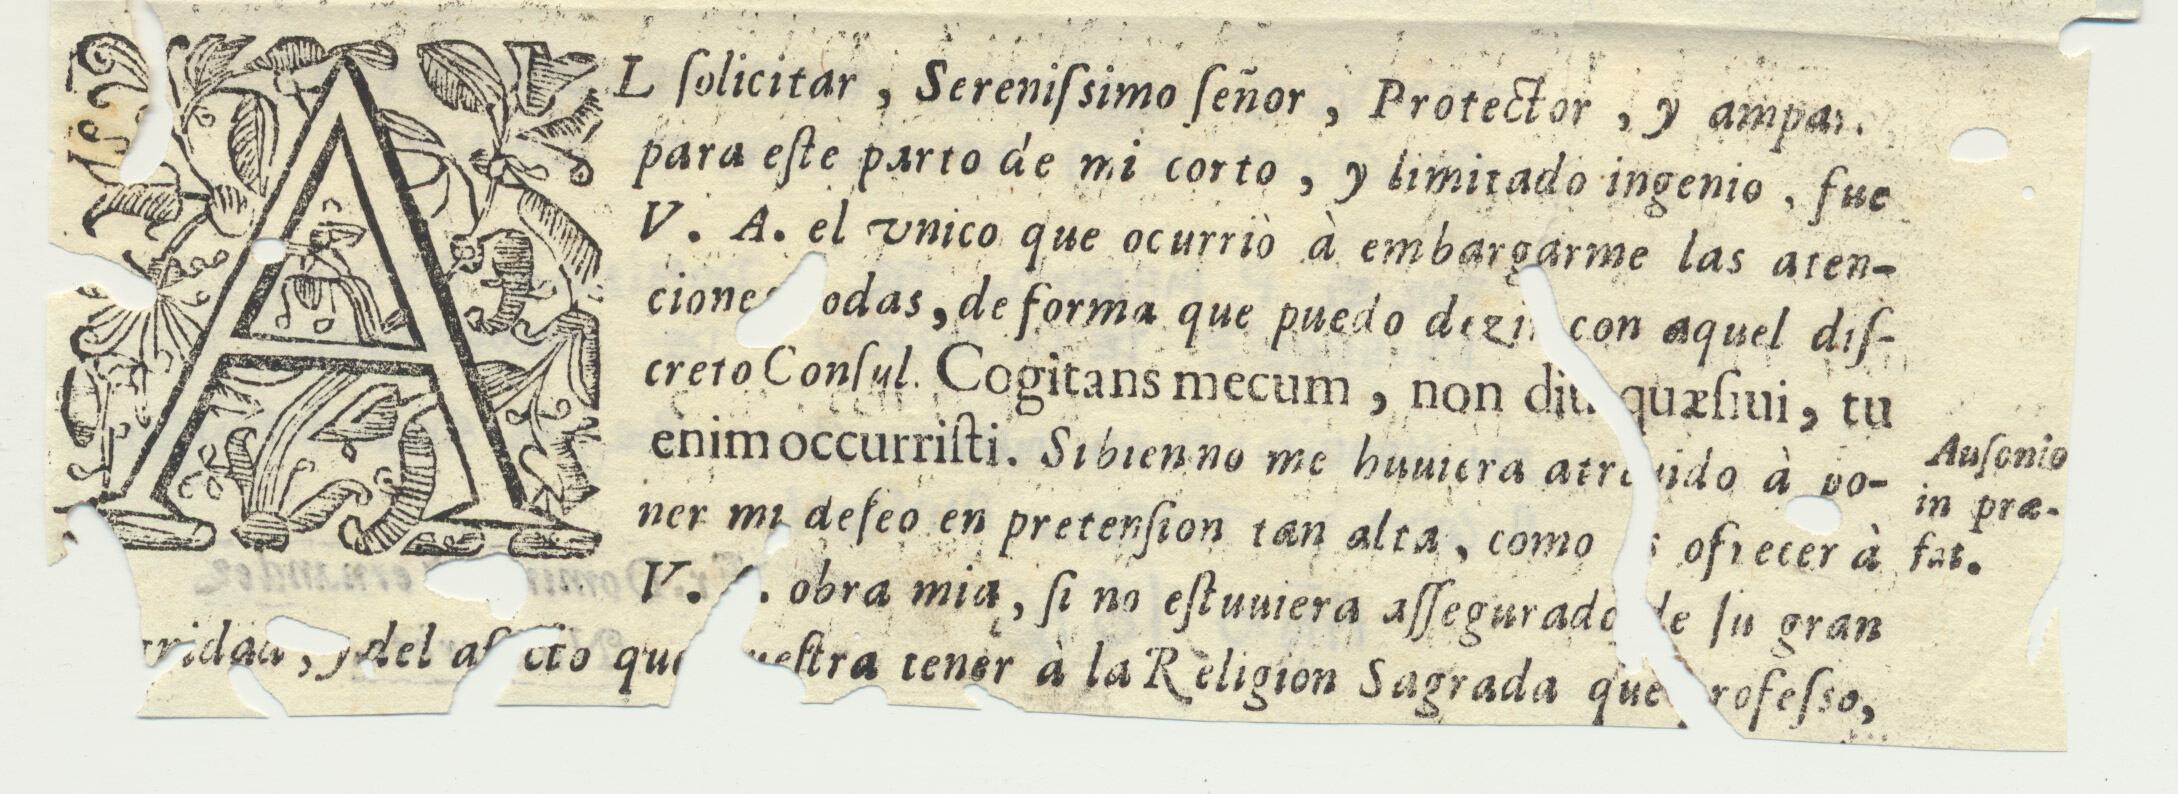 AL ſolicitar, Sereniſsimo ſeñor, Protector, y
para eſte parto de mi corto, y limitado ingenio, fue
V. A. el vnico que ocurriò à embargarme las aten-
de forma que puedo con aquel diſ-
creto Conſul. Cogitans mecum, non diu quæſiui, tu
enim occurriſti. Si bien no me huuiera à po-
Auſonio
ner mi deſeo en pretenſion tan alta, como ofrecer à
in præ-
fat.
V. obra mia, ſi no eſtuuiera aſſegurado de ſu gran
y del que tener à la Religion Sagrada que